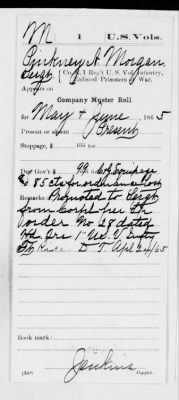 M 1 U.S. Vols.
Pinkney A Morgan
Sergt, Co. K, 1 Reg't U. S. Vol. Infantry,
Enlisted Prisoners of War.
Appears on
Company Muster Roll
for May & June, 1865
Present or absent Present
Stoppage, $ 100 for
Due Gov't $ 99 C & G Equipage
& 85 cts for ordnance lost
Remarks: Promoted to Sergt
from Corpl per
order No 28 dated
Hd Qrs 1" U.S. V. Infty
Ft D. T. Apl 24/65
Book mark:
Jenkins
Copyist.